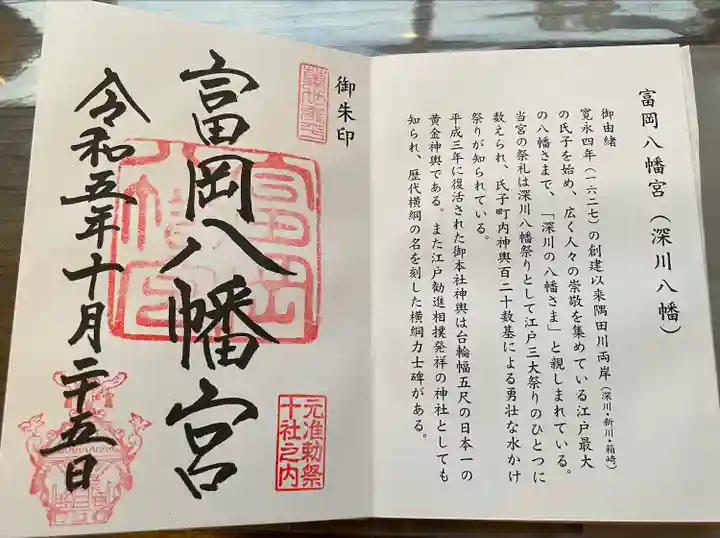 富岡八幡宮（深川八幡）
御由緒
寛永四年（一六二七）の創建以来隅田川両岸（深川・新川・箱崎）
の氏子を始め、広く人々の崇敬を集めている江戸最大
の八幡さまで、「深川の八幡さま」と親しまれている。
当宮の祭礼は深川八幡祭りとして江戸三大祭りのひとつに
数えられ、氏子町内神輿百二十数基による勇壮な水かけ
祭りが知られている。
平成三年に復活された御本社神輿は台輪幅五尺の日本一の
黄金神輿である。また江戸勧進相撲発祥の神社としても
知られ、歴代横綱の名を刻した横綱力士碑がある。
御朱印
元准勅祭
十社之内
富岡八幡宮
令和五年十月二十五日